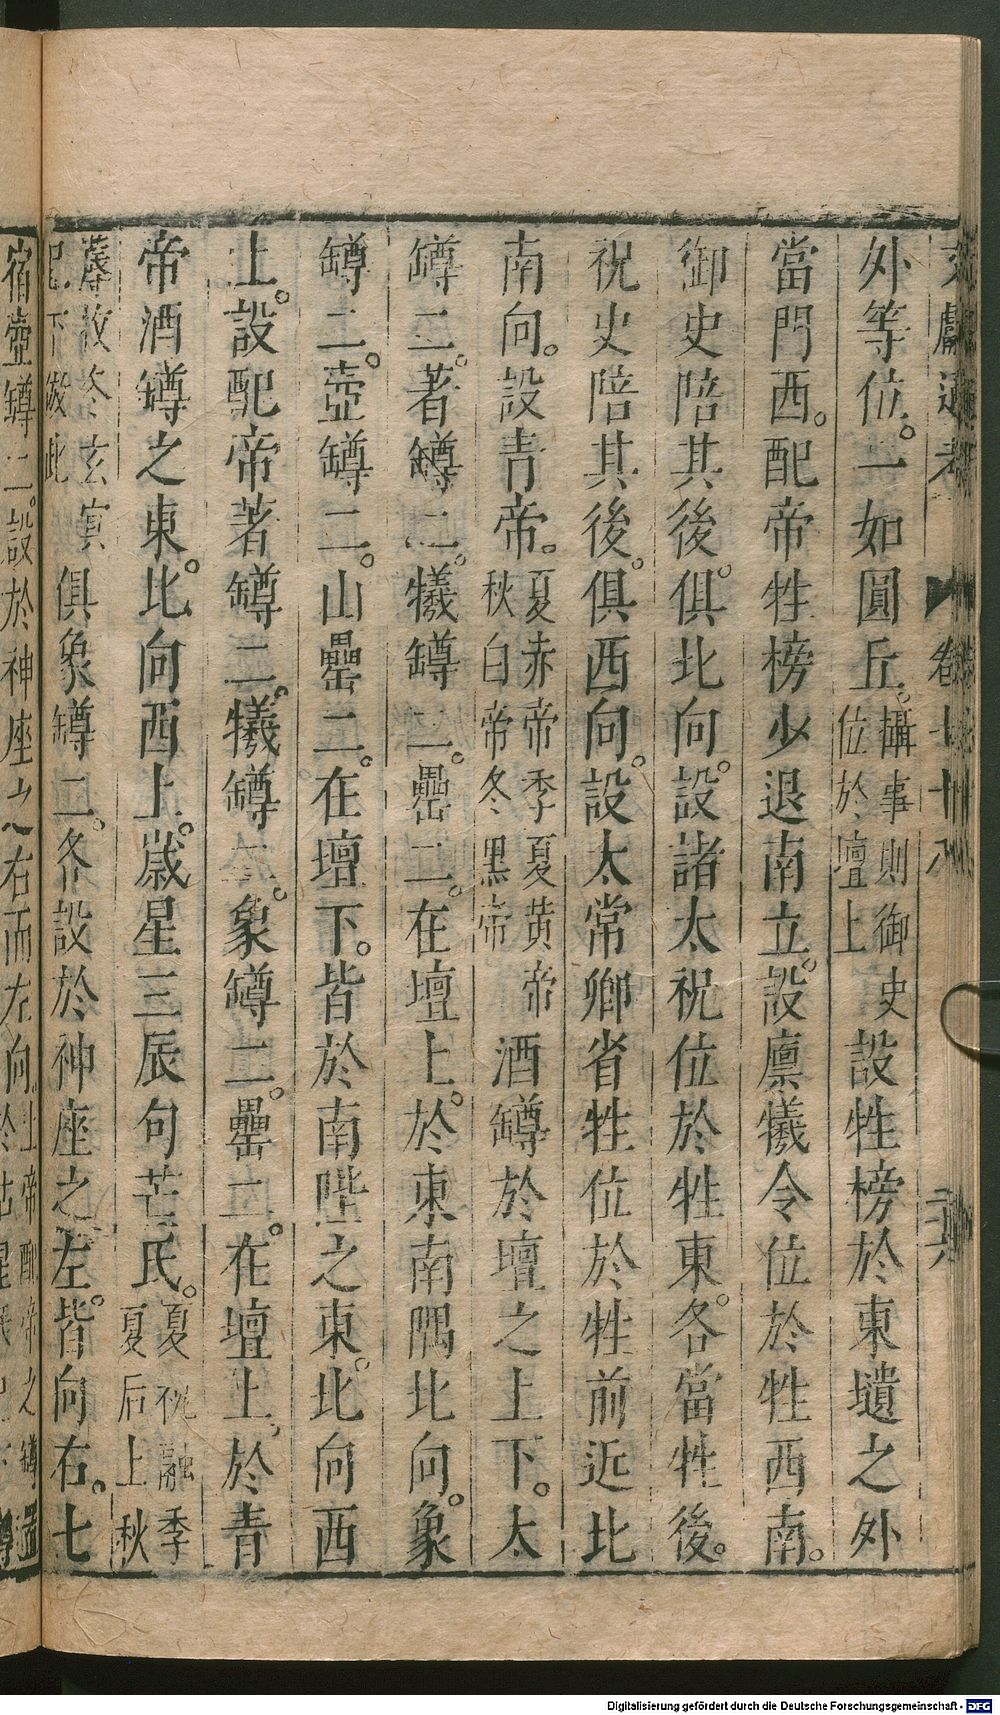 文獻通考 卷七十八
外等位。一如圓丘。攝事則御史位於壇上設牲榜於東壝之外
當門西。配帝牲榜少退南立。設廩犧令位於牲西南。
御史陪其後。俱北向。設諸太祝位於牲東。各當牲後。
祝史陪其後。俱西向。設太常卿省牲位於牲前近北
南向。設青帝。夏赤帝季夏黃帝秋白帝冬黑帝酒罇於壇之上下。太
罇二。著罇二。犧罇二。罍二。在壇上。於東南隅北向。象
罇二。壺罇二。山罍二。在壇下。皆於南陛之東。北向西
上。設配帝著罇二。犧罇二。象罇二。罍二。在壇上。於青
帝酒罇之東。北向西上。歲星三辰句芒氏。夏祝融季夏后土秋
蓐收冬玄冥已下倣此俱象罇二。各設於神座之左。皆向右。七
宿壺罇二。設於神座之右而左向上帝配帝之罇置
Digitalisierung gefördert durch die Deutsche Forschungsgemeinschaft - DFG